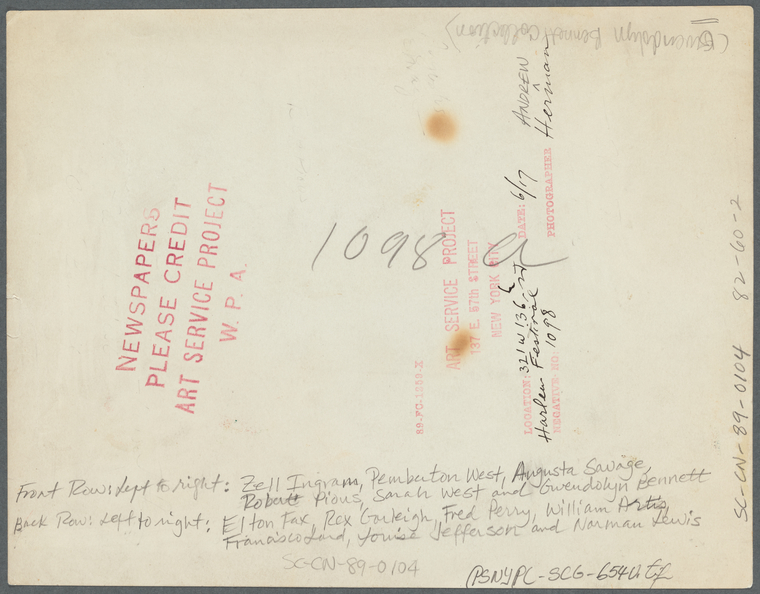 (Gwendolyn Bennett Collection)
NEWSPAPERS
PLEASE CREDIT
ART SERVICE PROJECT
W. P. A.
1098 a
ART SERVICE PROJECT
137 E. 57th STREET
NEW YORK CITY
LOCATION: 321 W 136 St DATE: 6/17 ANDREW
Harlem Festival PHOTOGRAPHER Herman
NEGATIVE NO: 1098
89-PC-1259.X
82-60-2
SC-CN-89-0104
Front Row: Left to right: Zell Ingram, Pemberton West, Augusta Savage,
Robert Pious, Sarah West and Gwendolyn Bennett
Back Row: Left to right: Elton Fax, Rex Gorleigh, Fred Perry, William Artis,
Francisco Lord, Louise Jefferson and Norman Lewis
SC-CN-89-0104